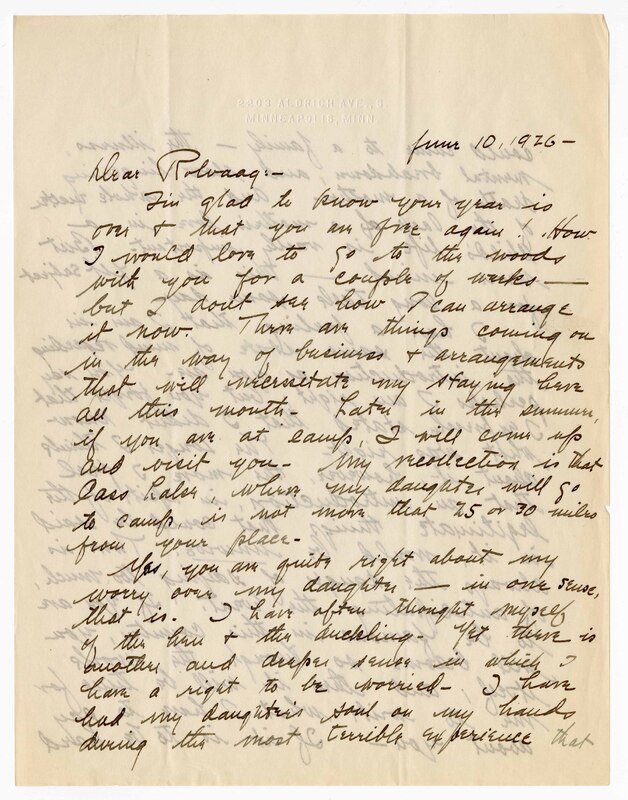 2203 ALDRICH AVE., S.
MINNEAPOLIS, MINN
June 10, 1926 -
Dear Rolvaag:-
I'm glad to know your year is
over & that you are free again! How
I would love to go to the woods
with you for a couple of weeks —
but I don't see how I can arrange
it now. There are things coming on
in the way of business & arrangements
that will necessitate my staying here
all this month - Later in the summer,
if you are at camp, I will come up
and visit you - My recollection is that
Cass Lake, where my daughter will go
to camp is not more that 25 or 30 miles
from your place -
Yes, you are quite right about my
worry over my daughter — in one sense,
that is. I have often thought myself
of the hen & the duckling - Yet there is
another and deeper sense in which I
have a right to be worried - I have
had my daughter's soul on my hands
during the most terrible experience that